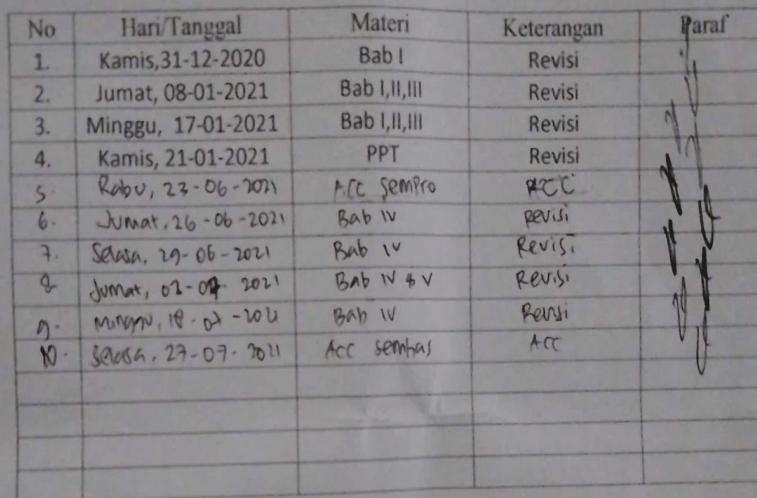 No Hari/Tanggal Materi Keterangan Paraf
1. Kamis,31-12-2020 Bab I Revisi
2. Jumat, 08-01-2021 Bab I,II,III Revisi
3. Minggu, 17-01-2021 Bab I,II,III Revisi
4. Kamis, 21-01-2021 PPT Revisi
5. Rabu, 23-06-2021 Acc Sempro ACC
6. Jumat, 26-06-2021 Bab IV Revisi
7. Selasa, 29-06-2021 Bab IV Revisi
8. Jumat, 02-07-2021 Bab IV & V Revisi
9. Minggu, 18-07-2021 Bab IV Revisi
10. Selasa, 27-07-2021 Acc semhas Acc